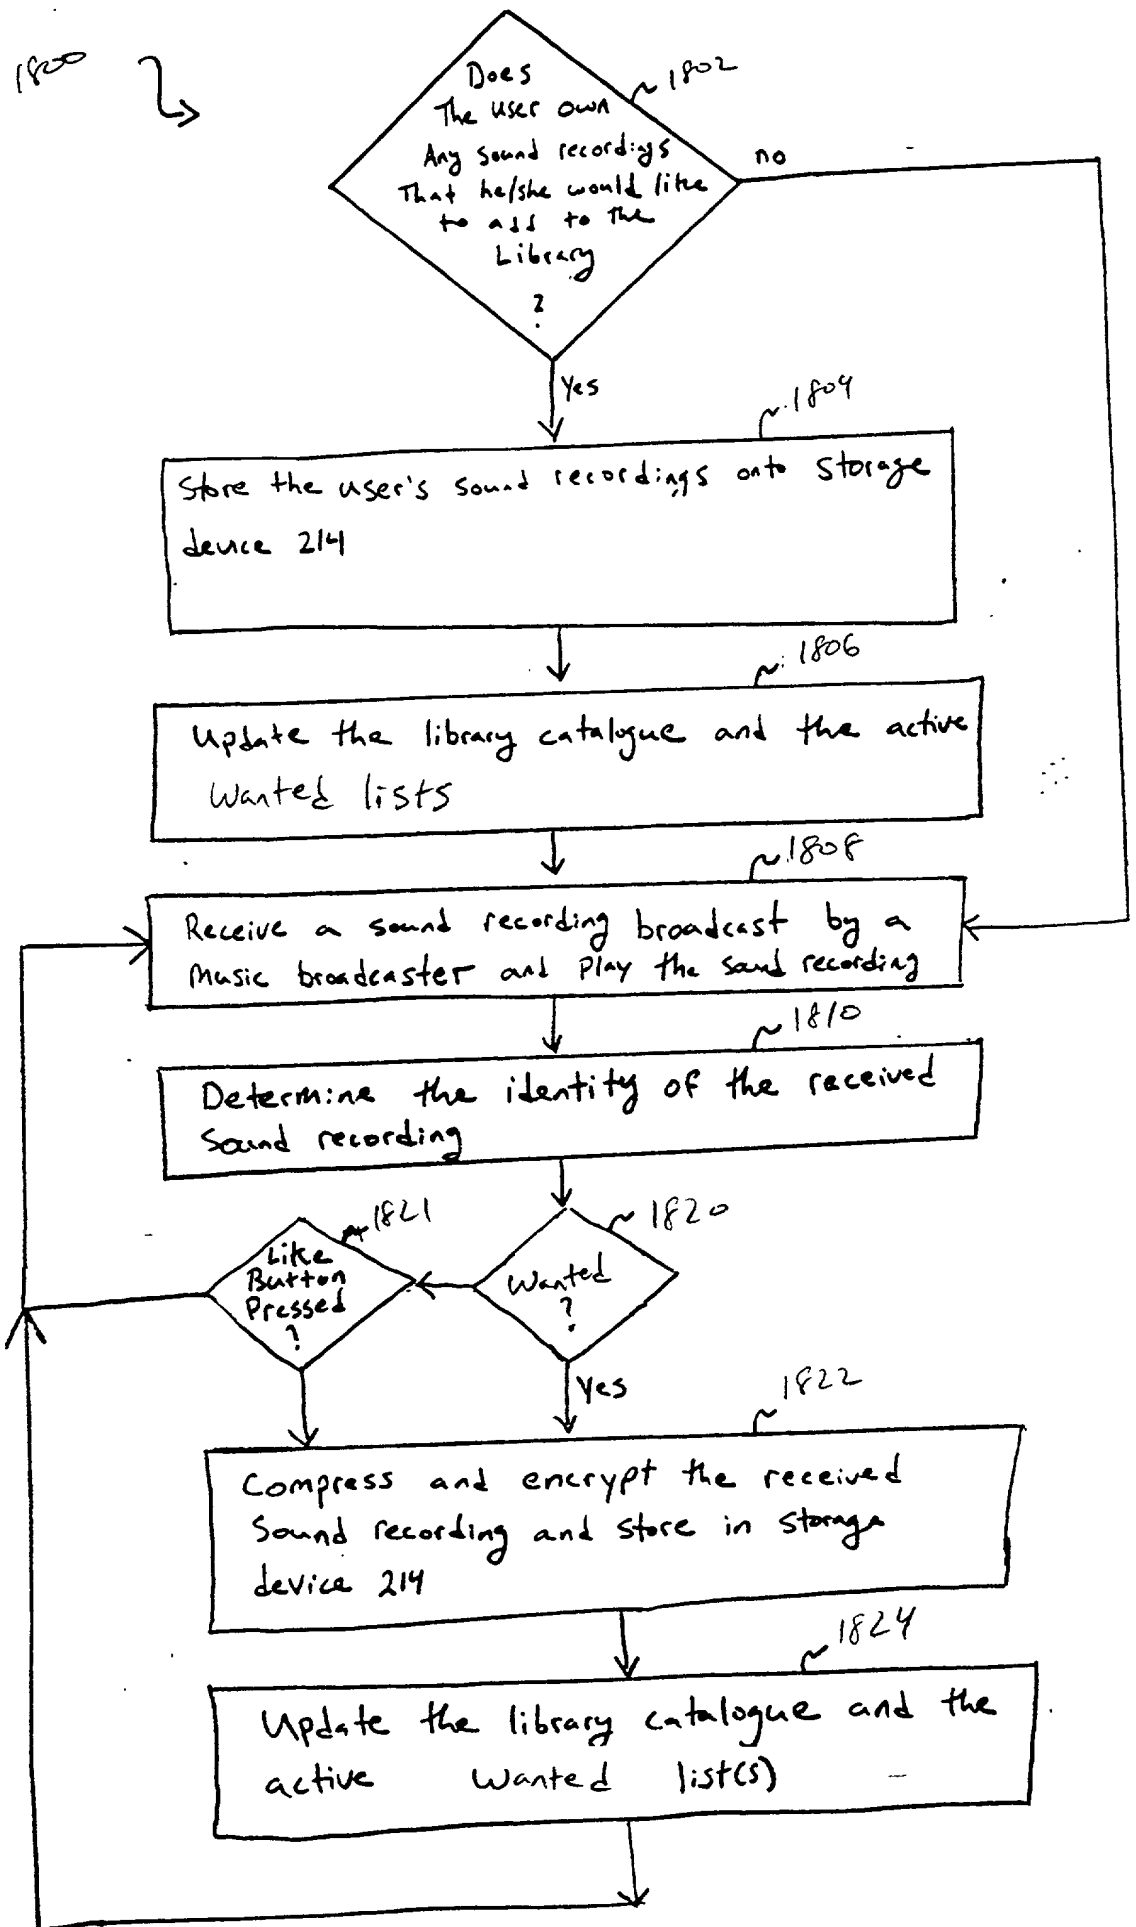 1800
1802
Does
The user own
Any sound recordings
That he/she would like
to add to the
Library
?
no
Yes
1804
Store the user's sound recordings onto storage
device 214
1806
Update the library catalogue and the active
Wanted lists
1808
Receive a sound recording broadcast by a
Music broadcaster and Play the sound recording
1810
Determine the identity of the received
Sound recording
1821
1820
Like
Button
Pressed
?
Wanted
?
Yes
1822
Compress and encrypt the received
Sound recording and store in storage
device 214
1824
Update the library catalogue and the
active Wanted list(s)